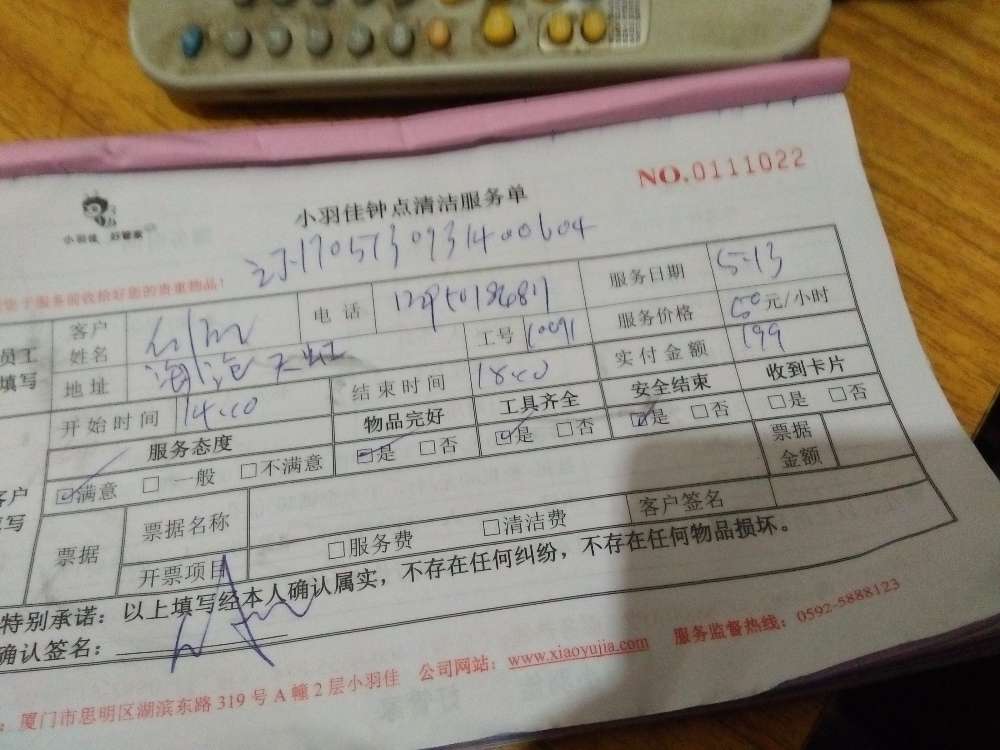 NO.0111022
小羽佳 好管家
小羽佳钟点清洁服务单
于服务前收拾好您的贵重物品!
员工填写 客户姓名 电话 服务日期 5.13
地址 工号 10091 服务价格 50元/小时
开始时间 14:00 结束时间 18:00 实付金额 199
服务态度 物品完好 工具齐全 安全结束 收到卡片
客户填写 ☑满意 □一般 □不满意 ☑是 □否 ☑是 □否 ☑是 □否 □是 □否
票据 票据名称 票据金额
开票项目 □服务费 □清洁费 客户签名
特别承诺：以上填写经本人确认属实，不存在任何纠纷，不存在任何物品损坏。
确认签名：
厦门市思明区湖滨东路319号A幢2层小羽佳 公司网站：www.xiaoyujia.com 服务监督热线：0592-5888123